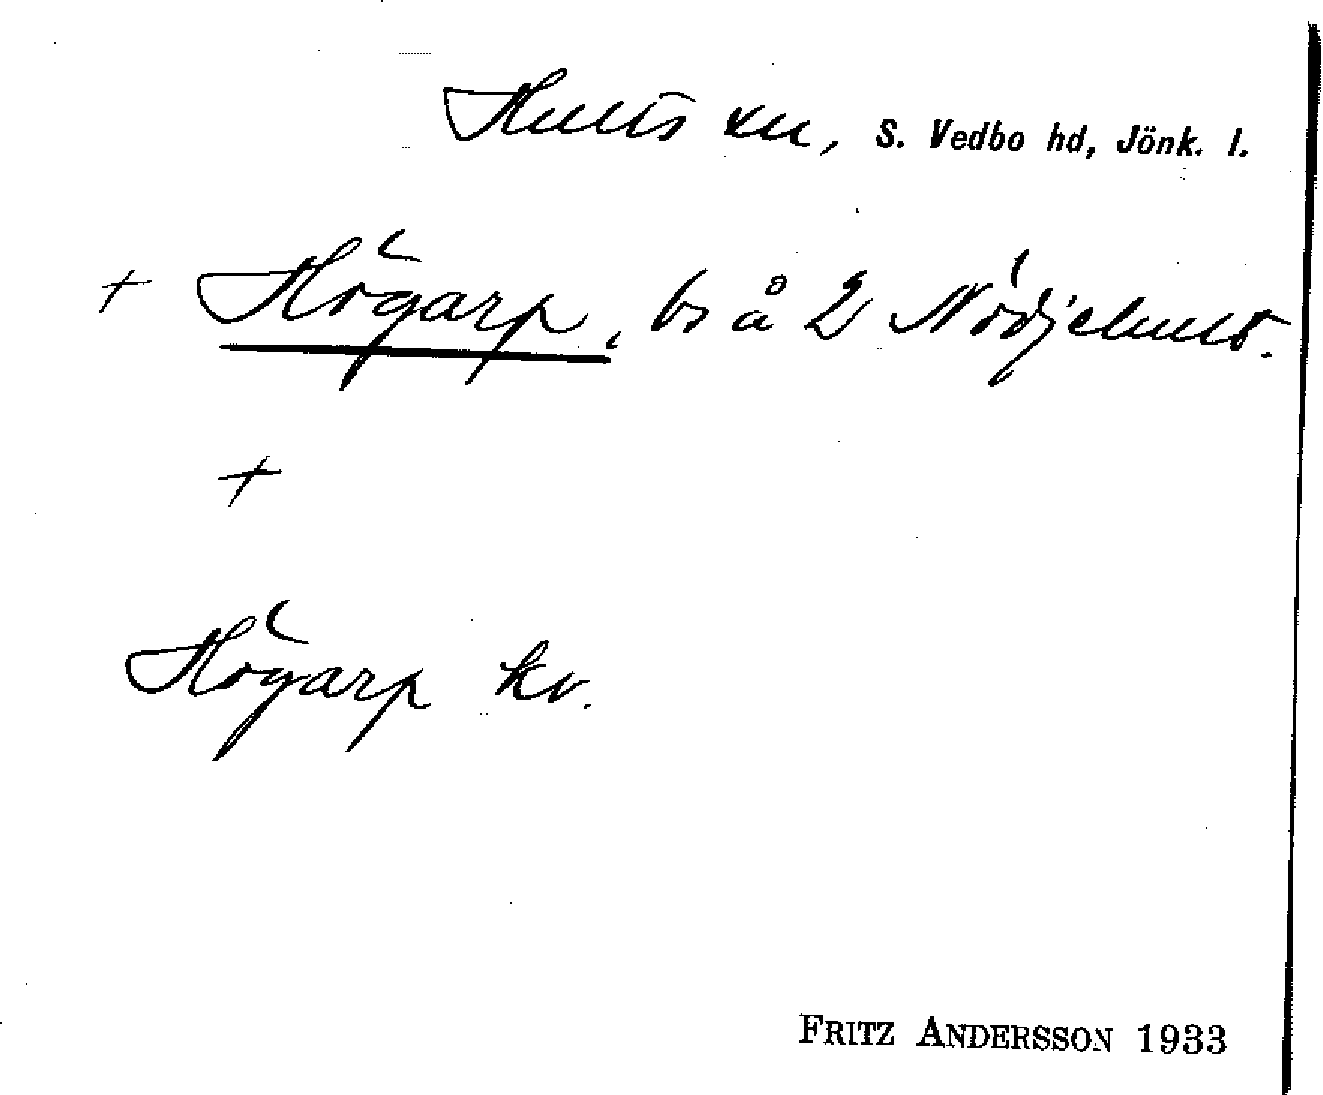 Hults sn, S. Vedbo hd, Jönk. l.
+ Högarp, bs å 2 Nödjehult.
+
Högarp kv.
FRITZ ANDERSSON 1933